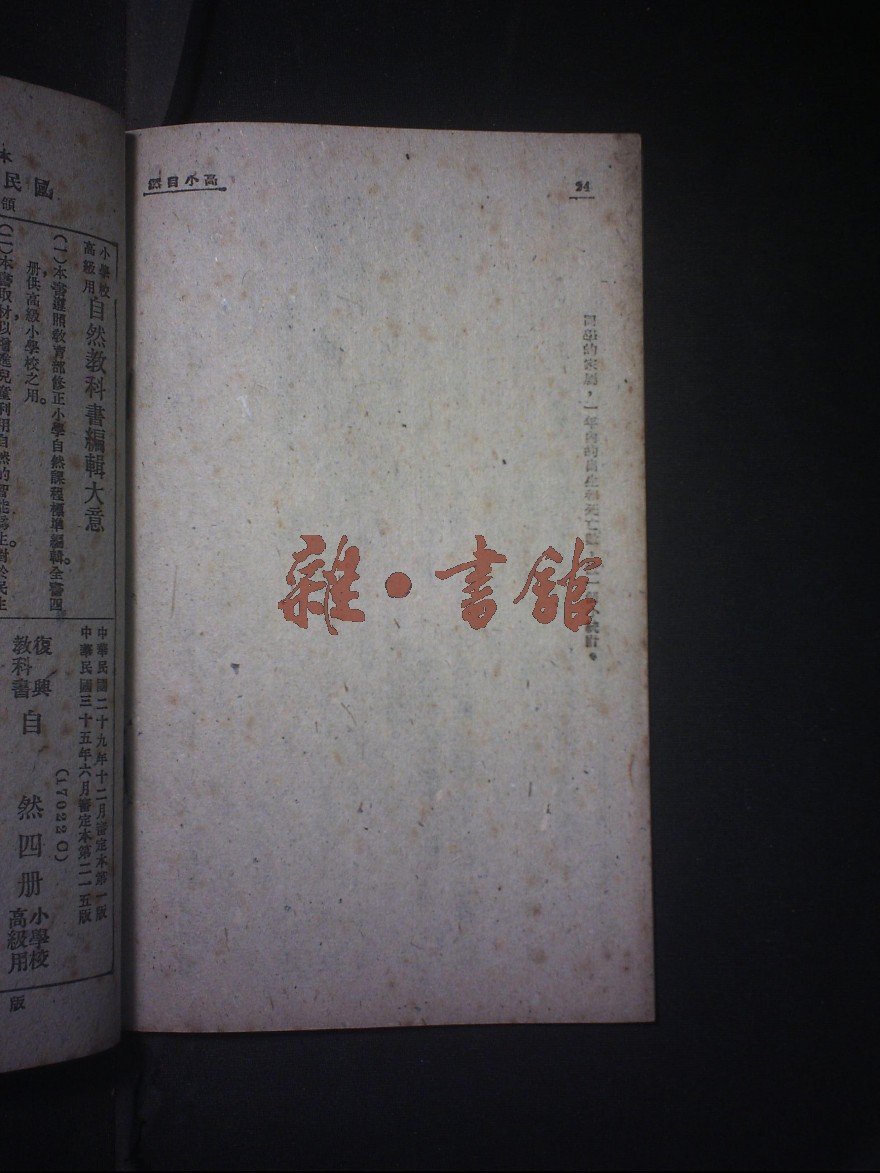 24
高小自然
習學的家屬，一年內的出生和死亡
雜·書館
國民
領
小學校
高級用
自然教科書編輯大意
(一)本書遵照教育部修正小學自然課程標準編輯，全書四
册，供高級小學校之用。
(二)本書取材以增進兒童利用自然的智能爲主，對於民生
中華民國二十九年十二月審定本第一版
中華民國三十五年六月審定本第二一五版
(17022C)
復興
教科書
自然四册
小學校
高級用
版